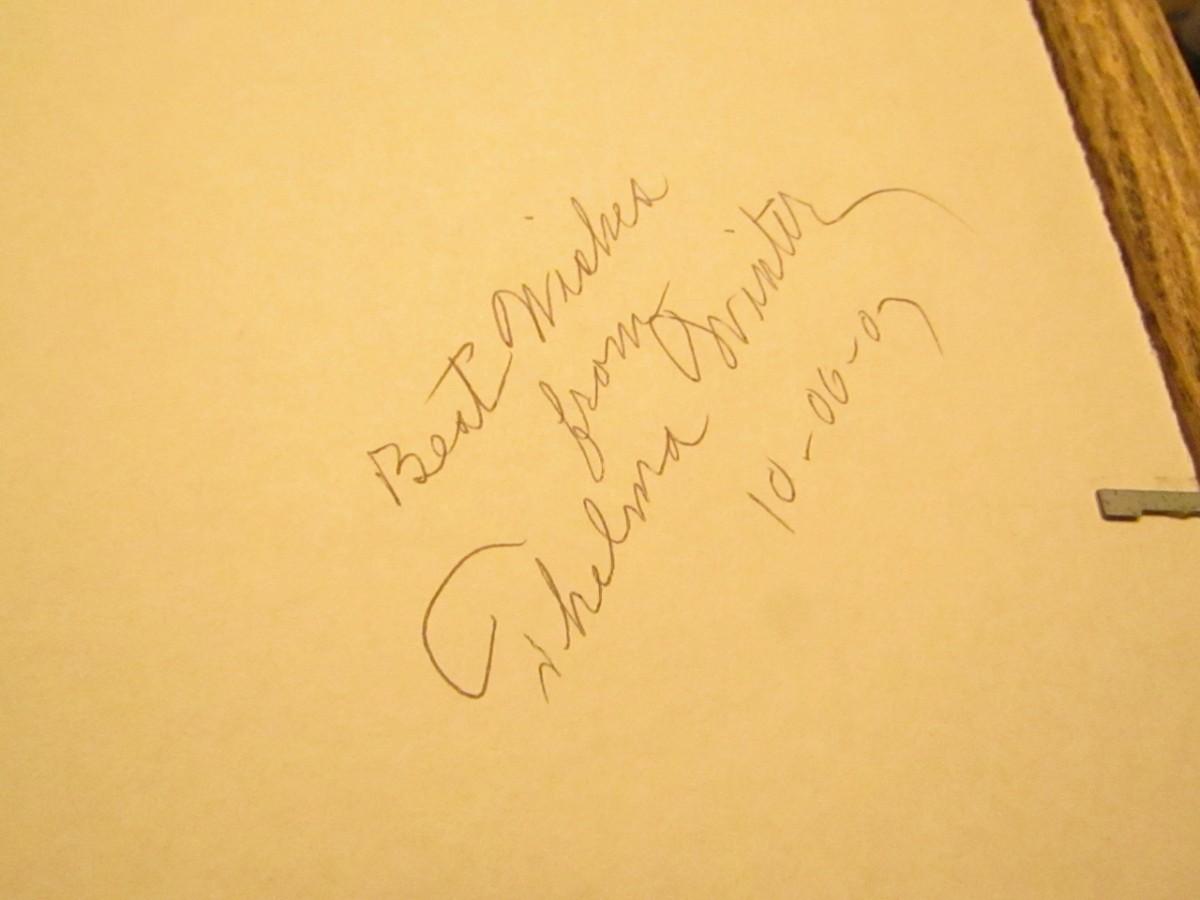 Best Wishes
from
Thelma Winter
10-06-07